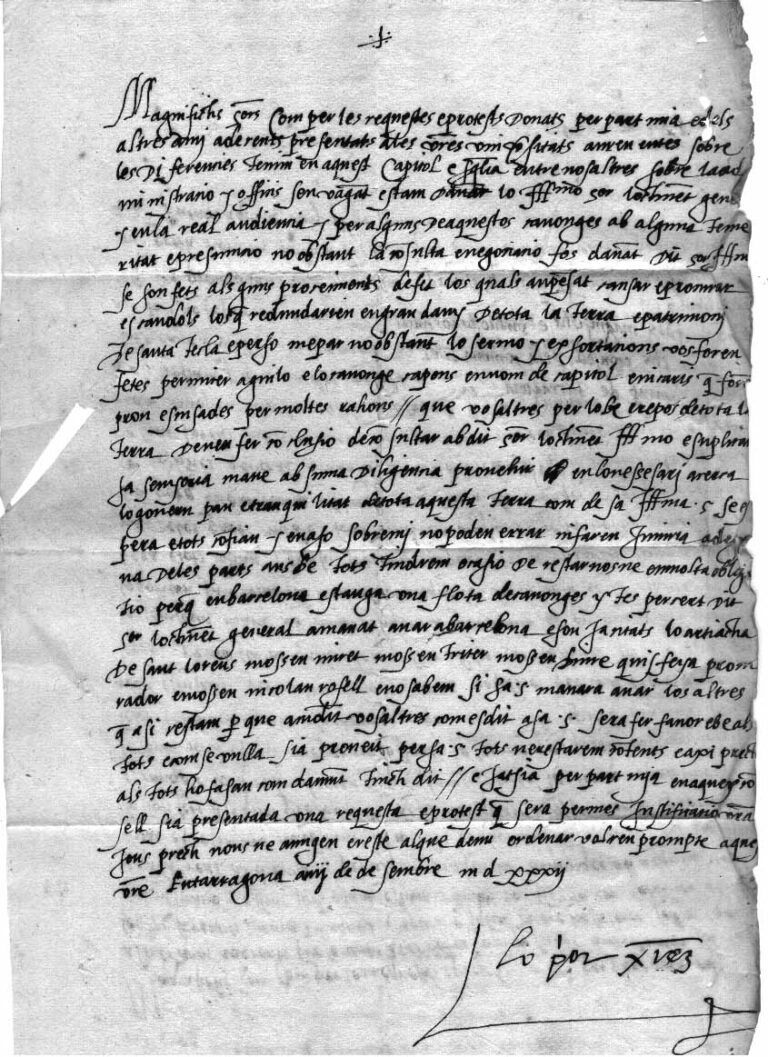 Magnifichs sors Com per les requestes e protests Donats per part mia e dels
altres a mi aderents presentats a les vres universitats auren entes sobre
les Diferencies Tenim en aquest Capitol e Iglia entre nosaltres sobre la ad
ministracio y offiis son vagat estam lo Illmo sor loctinet gene
y en la real audiencia y per alguns de aquestos canonges ab alguna Teme
ritat e presumcio no obstant la consulta e negociacio fos danat Dit sor Illm
se son fets alguns procesiments de fet los quals an pesat causar e procurar
escandols los q redundarien en gran dany De tota la Terra e patrimoni
De santa Tecla e per so me par no obstant lo sermo y exsortacions vos foren
Fetes per mier agullo e lo canonge capons en nom de capitol
pron escusades per moltes rahons // que vosaltres per lo be e repos de tota la
Terra Deueu fer conclusio de consultar ab dit sor loctinet Illmo e suplicar
sa senyoria mane ab suma Diligencia provehir en lo nessesari acerca
lo govern pau e tranquilitat de tota aquesta Terra com de sa Illma s se
pera e tots confian y en aso sobre mi no poden errar ni faren Iniuria a
na De les parts ans be Tots Tindrem ocasio De restar nos ne en molta oblig
tio perq en barcelona estauga una flota de canonges y Tes per cert Dit
sor loctinet general a manat anar a barcelona e son Ja citats lo artiacha
De sant lorens mossen miret mossen Friter mossen qui s feya procu
rador e mossen nicolau rosell e no sabem si sa s manara anar los altres
q asi restam per que vosaltres com es dit a sa s sera fer favor e be als
Tots e com se vulla sia proueit per sa s Tots ne restarem contents e axi prech
als Tots ho fasan com damunt Tinch dit // e Jatsia per part mya en aquex con
sell sia presentada una requesta e protest q sera per mes Justificacio vra
Jous prech nous ne anugen e reste al que deuu ordenar valren prompte a que
vre En tarragona a de desembre m d xxxii
lo